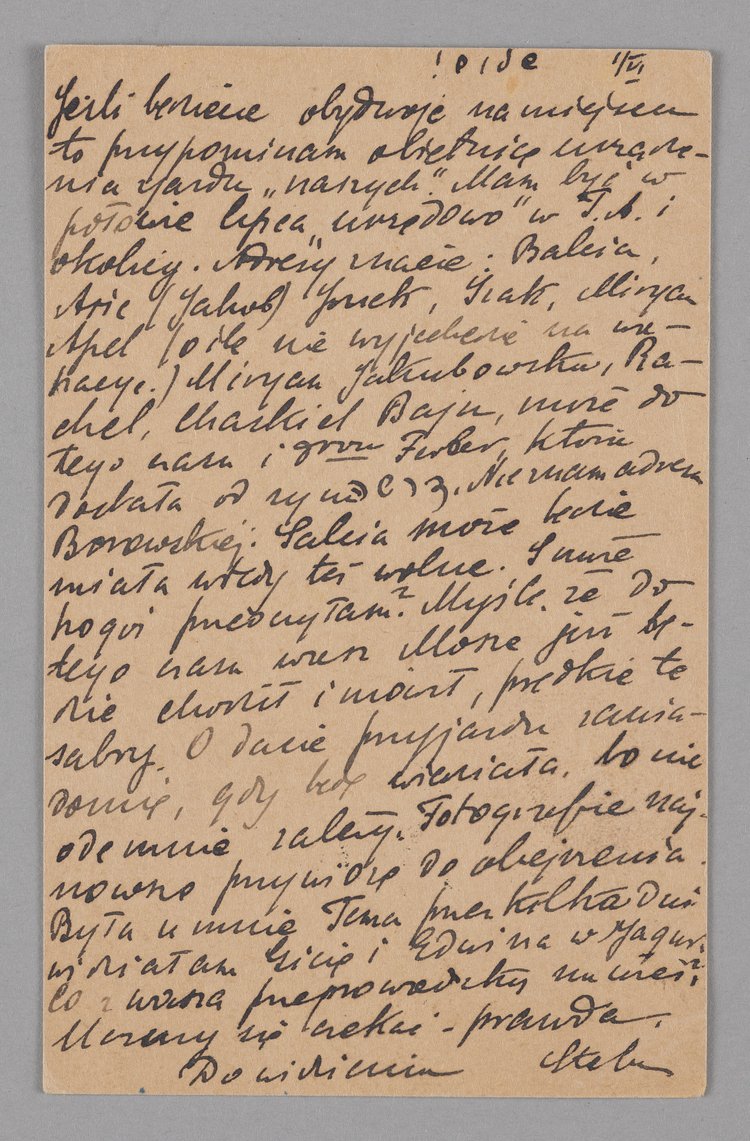 1/VI
Jeśli będziecie obydwoje na miejscu
to przypominam obietnicę urządze-
nia zjazdu „naszych”. Mam być w
połowie lipca „urzędowo” w T.A. i
okolicy. Adresy znacie: Balcia,
Arie (Jakub) Josek, Izak, Miryam
Apel (o ile nie wyjedzie na wa-
kacye.) Miryam Jakubowska, Ra-
chel, Chaskiel Bajn, może do
tego czasu i Ferber, która
dostała od syna. Nie znam adresu
Borowskiej. Salcia może będzie
miała wtedy też wolne. I może
kogoś przeoczyłam? Myślę, że do
tego czasu wasz Mosze już bę-
dzie chodził i mówił, prędkie te
sabry. O dacie przyjazdu zawia-
domię, gdy będę wiedziała, bo nie
odemnie zależy. Fotografie naj-
nowsze przywiozę do obejrzenia.
Była u mnie Tema przez kilka dni
widziałam Gicię i Edwina w Jagur.
Co z waszą przeprowadzką na wieś?
Możemy się czekać - prawda.
Do widzenia Stefa